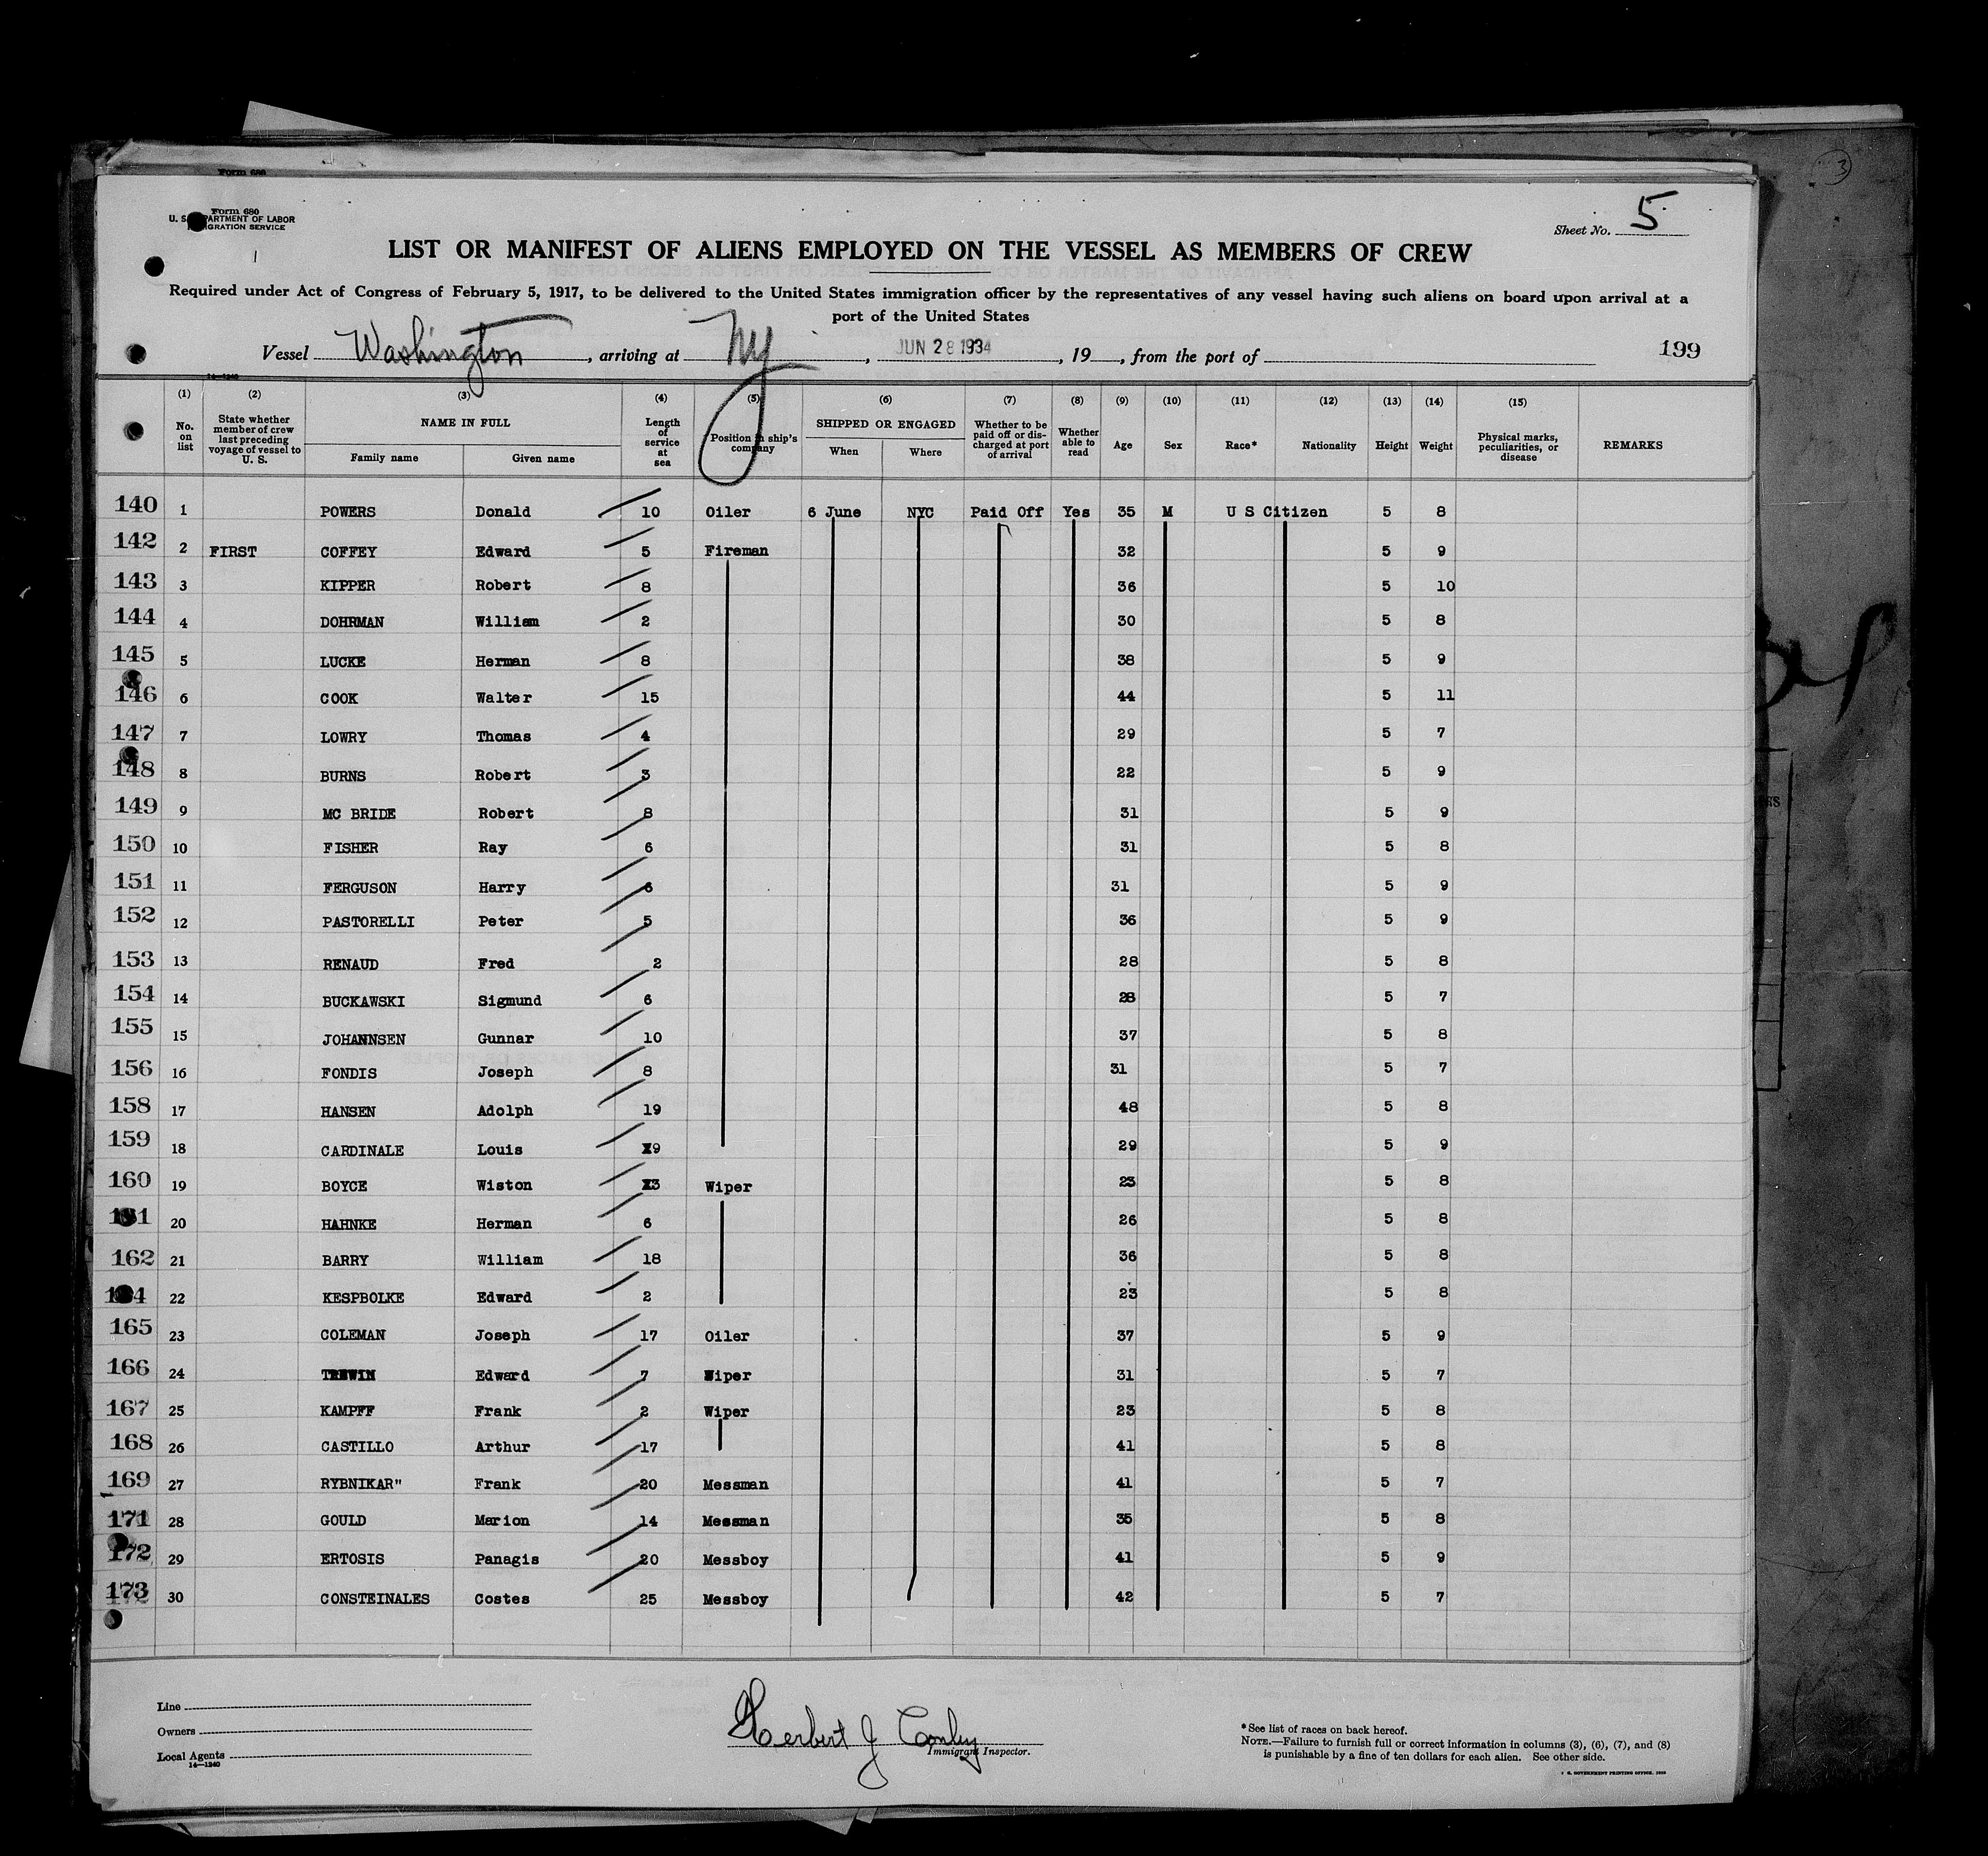 Form 680
Form 680
U. S. DEPARTMENT OF LABOR
IMMIGRATION SERVICE
Sheet No. 5
LIST OR MANIFEST OF ALIENS EMPLOYED ON THE VESSEL AS MEMBERS OF CREW
Required under Act of Congress of February 5, 1917, to be delivered to the United States immigration officer by the representatives of any vessel having such aliens on board upon arrival at a
port of the United States
Vessel Washington, arriving at NY, JUN 28 1934, 19 , from the port of 199
14—1240
(1) (2) (3) (4) (5) (6) (7) (8) (9) (10) (11) (12) (13) (14) (15)
No. on list State whether member of crew last preceding voyage of vessel to U. S. NAME IN FULL Family name Given name Length of service at sea Position in ship's company SHIPPED OR ENGAGED When Where Whether to be paid off or discharged at port of arrival Whether able to read Age Sex Race* Nationality Height Weight Physical marks, peculiarities, or disease REMARKS
140 1 POWERS Donald 10 Oiler 6 June NYC Paid Off Yes 35 M U S Citizen 5 8
142 2 FIRST COFFEY Edward 5 Fireman 32 5 9
143 3 KIPPER Robert 8 36 5 10
144 4 DOHRMAN William 2 30 5 8
145 5 LUCKE Herman 8 38 5 9
146 6 COOK Walter 15 44 5 11
147 7 LOWRY Thomas 4 29 5 7
148 8 BURNS Robert 3 22 5 9
149 9 MC BRIDE Robert 8 31 5 9
150 10 FISHER Ray 6 31 5 8
151 11 FERGUSON Harry 6 31 5 9
152 12 PASTORELLI Peter 5 36 5 9
153 13 RENAUD Fred 2 28 5 8
154 14 BUCKAWSKI Sigmund 6 28 5 7
155 15 JOHANNSEN Gunnar 10 37 5 8
156 16 FONDIS Joseph 8 31 5 7
158 17 HANSEN Adolph 19 48 5 8
159 18 CARDINALE Louis 9 29 5 9
160 19 BOYCE Wiston 3 Wiper 23 5 8
161 20 HAHNKE Herman 6 26 5 8
162 21 BARRY William 18 36 5 8
164 22 KESPBOLKE Edward 2 23 5 8
165 23 COLEMAN Joseph 17 Oiler 37 5 9
166 24 TREWIN Edward 7 Wiper 31 5 7
167 25 KAMPFF Frank 2 Wiper 23 5 8
168 26 CASTILLO Arthur 17 41 5 8
169 27 RYBNIKAR" Frank 20 Messman 41 5 7
171 28 GOULD Marion 14 Messman 35 5 8
172 29 ERTOSIS Panagis 20 Messboy 41 5 9
173 30 CONSTEINALES Costes 25 Messboy 42 5 7
Line
Owners
Local Agents
14—1240
Herbert J Conley
Immigrant Inspector.
* See list of races on back hereof.
NOTE.—Failure to furnish full or correct information in columns (3), (6), (7), and (8)
is punishable by a fine of ten dollars for each alien. See other side.
U. S. GOVERNMENT PRINTING OFFICE
3